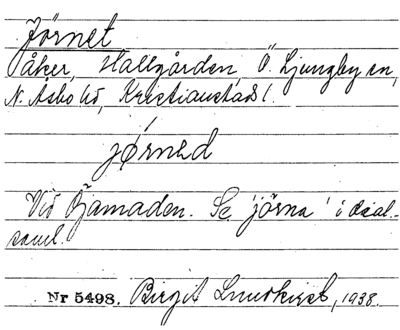 Jörnet
åker, Hallgården, Ö. Ljungby sn,
N. Åsbo hd, Kristianstads l.
jǿrnəd
Vid Ōjamaden. Se 'jörna' i dial.-
saml.
Nr 5498. Birgit Lundkvist, 1938.